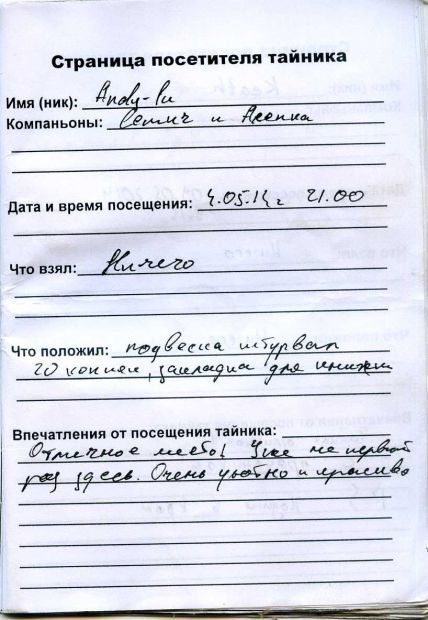 Страница посетителя тайника
Имя (ник): Andy-Ru
Компаньоны: Семич и Асенка
Дата и время посещения: 4.05.14г 21.00
Что взял: Ничего
Что положил: подвеска штурвал
20 копеек, закладка для книжки
Впечатления от посещения тайника:
Отличное место! Уже не первый
раз здесь. Очень уютно и красиво